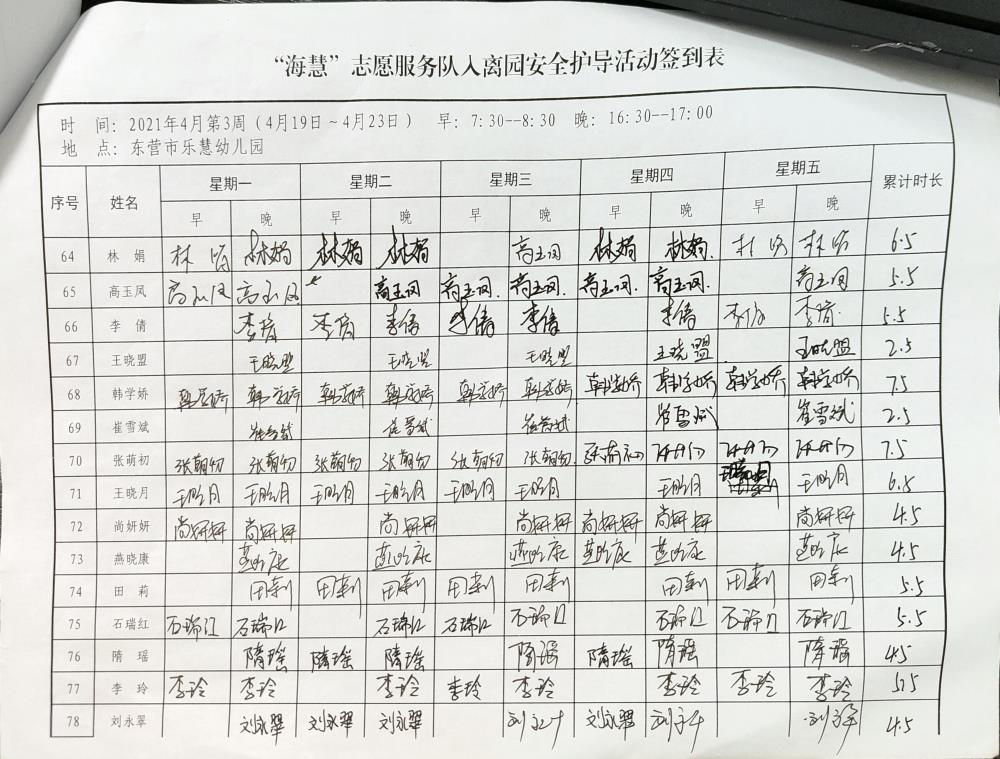 “海慧”志愿服务队入离园安全护导活动签到表
时 间：2021年4月第3周（4月19日～4月23日） 早：7:30--8:30 晚：16:30--17:00
地 点：东营市乐慧幼儿园
序号 姓名 星期一 星期二 星期三 星期四 星期五 累计时长
早 晚 早 晚 早 晚 早 晚 早 晚
64 林娟 林娟 林娟 林娟 林娟 高玉凤 林娟 林娟 林娟 林娟 6.5
65 高玉凤 高玉凤 高玉凤 高玉凤 高玉凤 高玉凤 高玉凤 高玉凤 高玉凤 5.5
66 李倩 李倩 李倩 李倩 李倩 李倩 李倩 李倩 李倩 5.5
67 王晓盟 王晓盟 王晓盟 王晓盟 王晓盟 王晓盟 2.5
68 韩学娇 韩学娇 韩学娇 韩学娇 韩学娇 韩学娇 韩学娇 韩学娇 韩学娇 韩学娇 韩学娇 7.5
69 崔雪斌 崔雪斌 崔雪斌 崔雪斌 崔雪斌 崔雪斌 2.5
70 张萌初 张萌初 张萌初 张萌初 张萌初 张萌初 张萌初 张萌初 7.5
71 王晓月 王晓月 王晓月 王晓月 王晓月 王晓月 王晓月 王晓月 王晓月 6.5
72 尚妍妍 尚妍妍 尚妍妍 尚妍妍 尚妍妍 尚妍妍 尚妍妍 尚妍妍 4.5
73 燕晓康 燕晓康 燕晓康 燕晓康 燕晓康 燕晓康 燕晓康 4.5
74 田莉 田莉 田莉 田莉 田莉 田莉 田莉 田莉 田莉 5.5
75 石瑞红 石瑞红 石瑞红 石瑞红 石瑞红 石瑞红 石瑞红 石瑞红 石瑞红 5.5
76 隋瑶 隋瑶 隋瑶 隋瑶 隋瑶 隋瑶 隋瑶 隋瑶 4.5
77 李玲 李玲 李玲 李玲 李玲 李玲 李玲 李玲 李玲 5.5
78 刘永翠 刘永翠 刘永翠 刘永翠 刘永翠 刘永翠 刘永翠 刘永翠 4.5